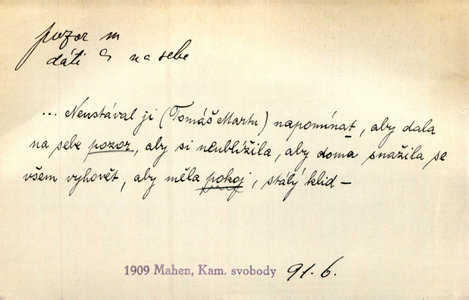 pozor m
dáti na sebe
... Neustával ji (Tomáš Martu) napomínat, aby dala
na sebe pozor, aby si neublížila, aby doma snažila se
všem vyhovět, aby měla pokoj, stálý klid —
1909 Mahen, Kam. svobody 91.6.